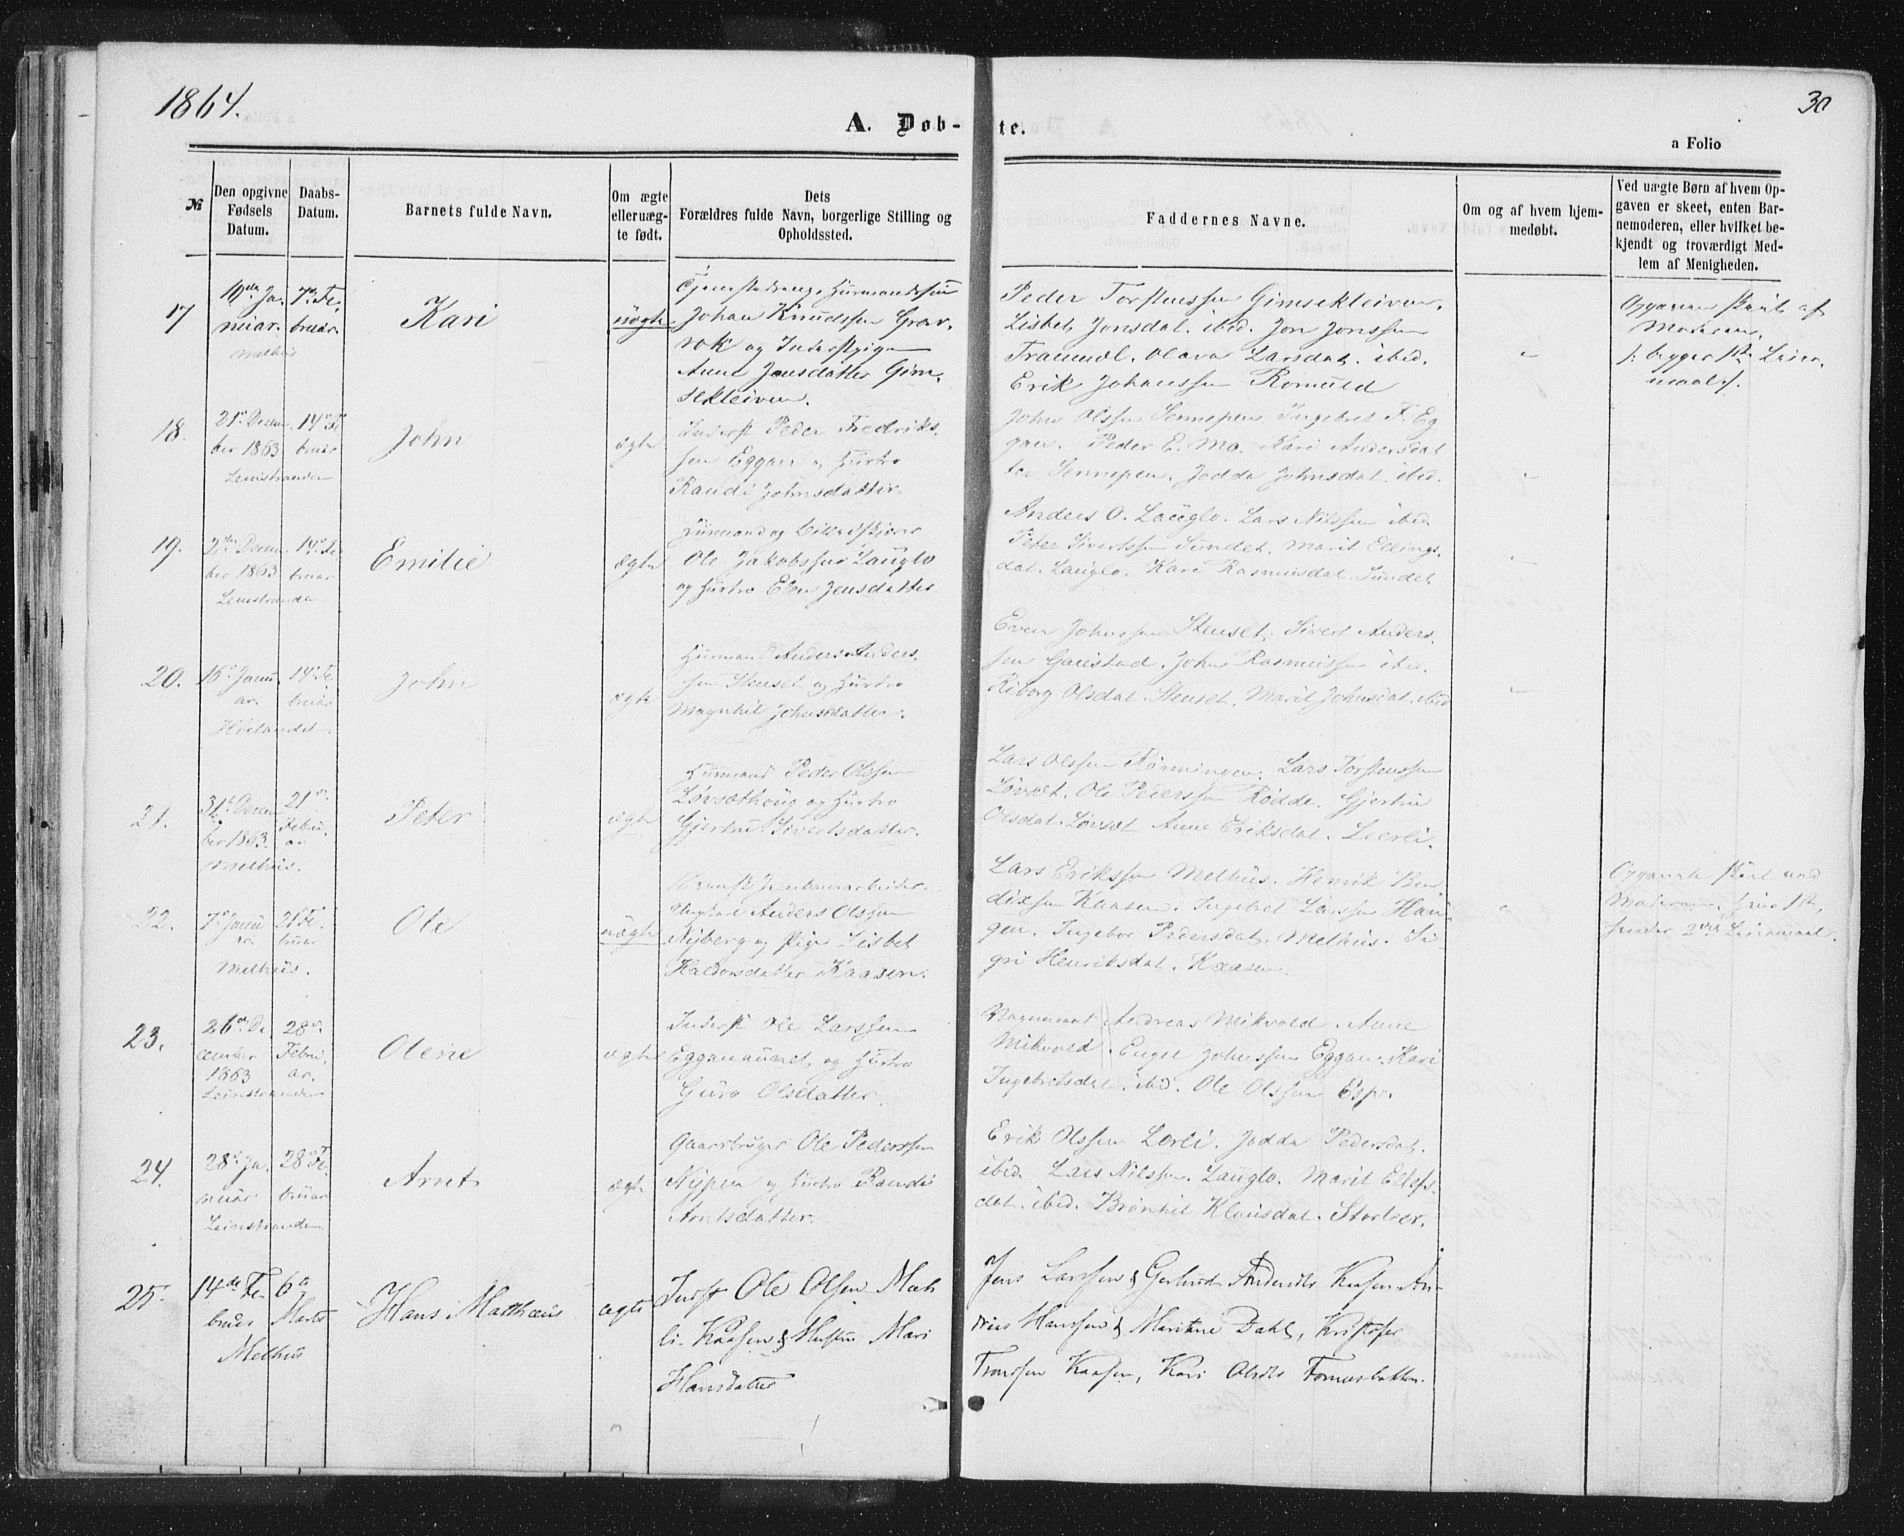 1864.
30
A. Døb-
te.
a Folio
№
Den opgivne Fødsels Datum.
Daabs-Datum.
Barnets fulde Navn.
Om ægte eller uæg-te født.
Dets Forældres fulde Navn, borgerlige Stilling og Opholdssted.
Faddernes Navne.
Om og af hvem hjem-medøbt.
Ved uægte Børn af hvem Op-gaven er skeet, enten Bar-nemoderen, eller hvilket be-kjendt og troværdigt Med-lem af Menigheden.
17
19de Ja-
nuar.
Melhus
7de Fe-
bruar.
Kari
uægte
Johan Knudssen Grav-
rok og Inderstpige
Anne Jonsdatter Gim-
sekleiven.
Peder Torstenssen Gimsekleiven.
Lisbet Jonsdat. ibid. Jon Jonssen
Olava Larsdat. ibid.
Erik Johanssen Romuld
Opgaven skeet af
Moderen
18.
21de Decem-
ber 1863
Leinstranden
14de Fe-
bruar
John
ægte
Inderst Peder Fredriks-
sen Eggan og Hustro
Randi Johnsdatter.
John Olssen Sennepen Ingebret F. Eg-
gan. Peder E. Mo. Kari Andersdat-
ter Sennepen. Jodda Johnsdat. ibid.
19.
2den Decem-
ber 1863
Leinstranden
14de Fe-
bruar
Emilie
ægte
Husmand og
Ole Jakobssen Lauglo
og Hustro Elen Jensdatter
Anders O. Lauglo. Lars Nilssen ibid.
Peter Sivertssen Sundet. Marit Ellings-
dat. Lauglo. Kari Rasmusdat. Sundet
20.
16de Janu-
ar.
Høilandet.
14de Fe-
bruar
John
ægte
Husmand Anders Anders-
sen Stenset og Hustro
Magnhil Johnsdatter.
Even Johnssen Stenset. Sivert Anders-
sen Gaustad. John Rasmussen ibid.
Kiborg Olsdat. Stenset. Marit Johnsdat. ibid.
21.
31te Decem-
ber 1863.
Melhus.
21de
Febru-
ar
Peter
ægte
Husmand Peder Olssen
Løvsethoug og Hustro
Gjertru Sivertsdatter.
Lars Olssen Rønningen. Lars Torstenssen
Løvset. Ole Pederssen Rødde. Gjertru
Olsdat. Løvset Anne Eriksdat. Leerli.
22.
7de Janu-
ar.
Melhus.
21de Fe-
bruar
Ole
uægte
Ungkarl Anders Olssen
Nyberg og Pige Lisbet
Haldorsdatter Kaasen.
Lars Erikssen Melhus. Henrik Ben-
dixsen Kaasen. Ingebret Larssen Hau-
gen. Ingebor Pedersdat. Melhus. Si-
gri Henriksdat. Kaasen.
Opgaven skeet ved
Moderen
23.
26de De-
cember
1863
Leinstranden
28de
Febru-
ar.
Olene
ægte
Inderst Ole Larssen
Egganaunet og Hustro
Guro Olsdatter.
Andreas Mikvold. Anne
Mikvold. Engel Johnssen Eggan. Kari
Ingebretsdat. ibid. Ole Olssen Espe.
24.
28de Ja-
nuar.
Leinstranden
28de Fe-
bruar
Arnt
ægte
Gaardbruger Ole Pederssen
Nypen og Hustro Randi
Arntsdatter.
Erik Olssen Lerli. Jodda Pedersdat.
ibid. Lars Nilssen. Lauglo. Marit Ellefs-
dat. ibid. Brønhil Klausdat. Storler.
25.
14de Fe-
bruar
Melhus
6te
Marts
Hans Matthæus
ægte
Inderst Ole Olsen
Kaasen & Hustru Mari
Hansdatter
Jens Larssen & Gertrud Kaasen
Hanssen & Marithe Dahl, Kristofer
Trondsen Kaasen, Kari Olsdtr